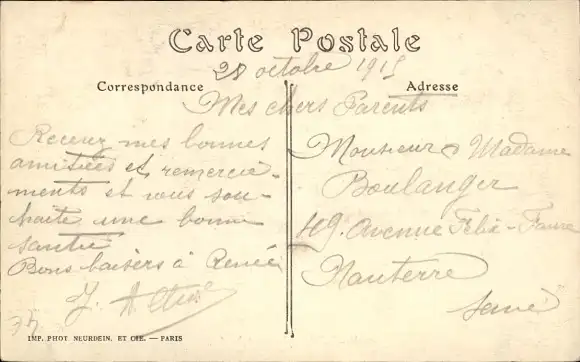 Carte Postale
28 octobre 1915
Correspondance
Adresse
Mes chers Parents
Recevez mes bonnes
amitiées et remercie-
ments et vous sou-
haite une bonne
santée
Bons baisers à Renée
Monsieur & Madame
Boulanger
49. Avenue Félix-Faure
Nanterre
Seine
IMP. PHOT. NEURDEIN. ET CIE. — PARIS